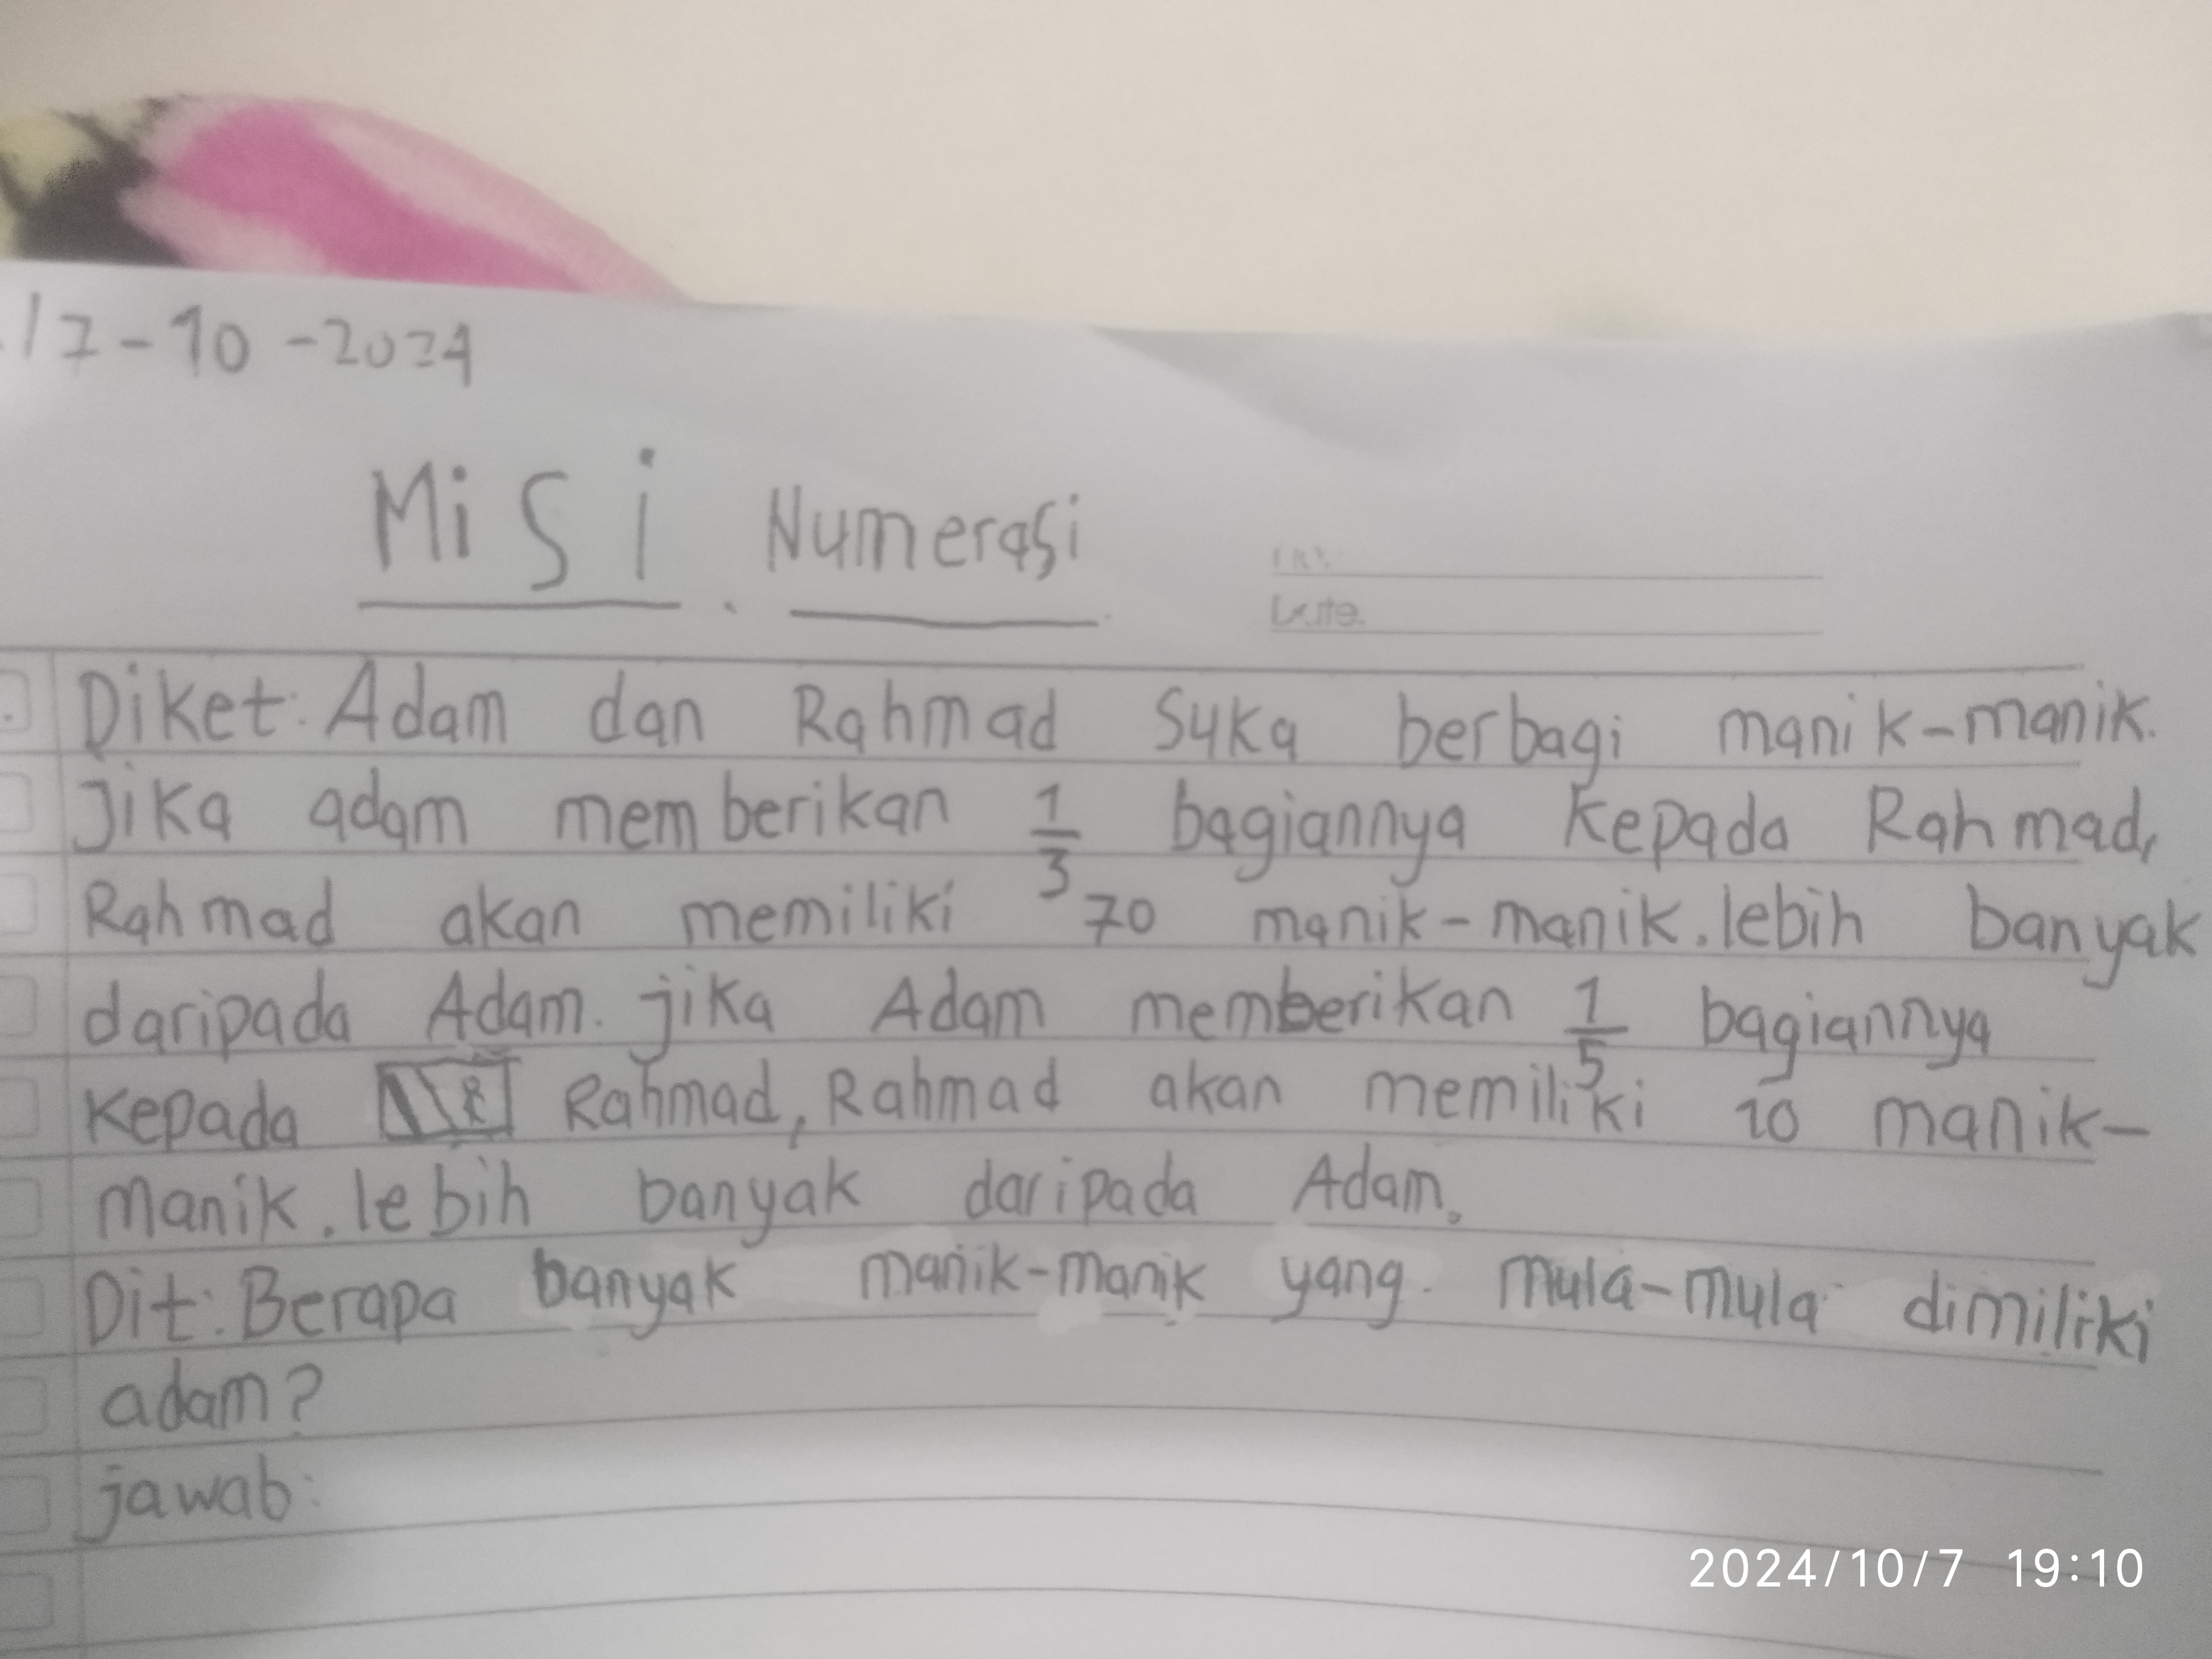 17-10-2024
Misi Numerasi
Date.
Diket: Adam dan Rahmad Suka berbagi manik-manik.
Jika adam memberikan 1/3 bagiannya Kepada Rahmad,
Rahmad akan memiliki 70 manik-manik.lebih banyak
daripada Adam. jika Adam memberikan 1/5 bagiannya
Kepada Rahmad, Rahmad akan memiliki 10 manik-
manik.lebih banyak daripada Adam.
Dit: Berapa banyak manik-manik yang mula-mula dimiliki
adam?
jawab:
2024/10/7 19:10